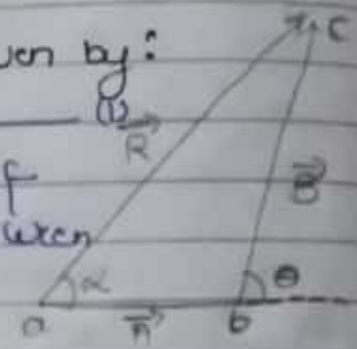 ven by:
(1)
f
ween
R
B
C
α
θ
a
A
b